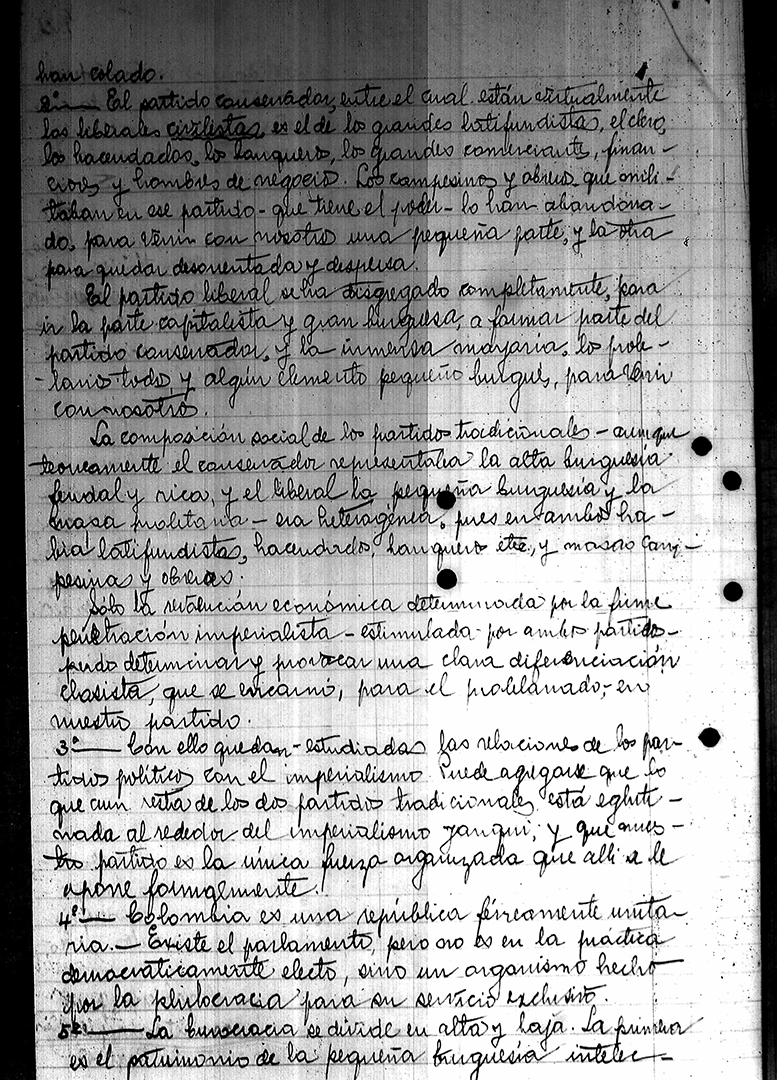 han colado.
2º.— El partido conservador, entre el cual están virtualmente
los liberales civilistas, es el de los grandes latifundistas, el clero,
los hacendados, los banqueros, los grandes comerciants, finan-
cieros y hombres de negocio. Los campesinos y obreros que mili-
taban en ese partido - que tiene el poder - lo han abandona-
do, para venir con nosotros una pequeña parte, y la otra
para quedar desorientada y dispersa.
El partido liberal se ha disgregado completamente, para
ir la parte capitalista y gran burguesa, a formar parte del
partido conservador, y la inmensa mayoría, los prole-
tarios todos y algún elemento pequeño burgués, para venir
con nosotros.
La composición social de los partidos tradicionales - aunque
teoricamente el conservador representaba la alta burguesía
feudal y rica, y el liberal la pequeña burguesía y la
masa proletaria - era heterogénea, pues en ambos ha-
bía latifundistas, hacendados, banqueros etc., y masas cam-
pesinas y obreras.
Sólo la revolución económica determinada por la firme
penetración imperialista - estimulada por ambos partidos -
pudo determinar y provocar una clara diferenciación
clasista, que se encarnó, para el proletariado, en
nuestro partido.
3ª.— Con ello quedan estudiadas las relaciones de los par-
tidos políticos con el imperialismo. Puede agregarse que lo
que aun resta de los dos partidos tradicionales, está agluti-
nada al rededor del imperialismo yanqui, y que nues-
tro partido es la única fuerza organizada que allí se le
opone formalmente.
4º.— Colombia es una república férreamente unita-
ria.— Existe el parlamento, pero no es en la práctica
democráticamente electo, sino un organismo hecho
por la plutocracia para su servicio exclusivo.
5º.— La burocracia se divide en alta y baja. La primera
es el patrimonio de la pequeña burguesía intelec-